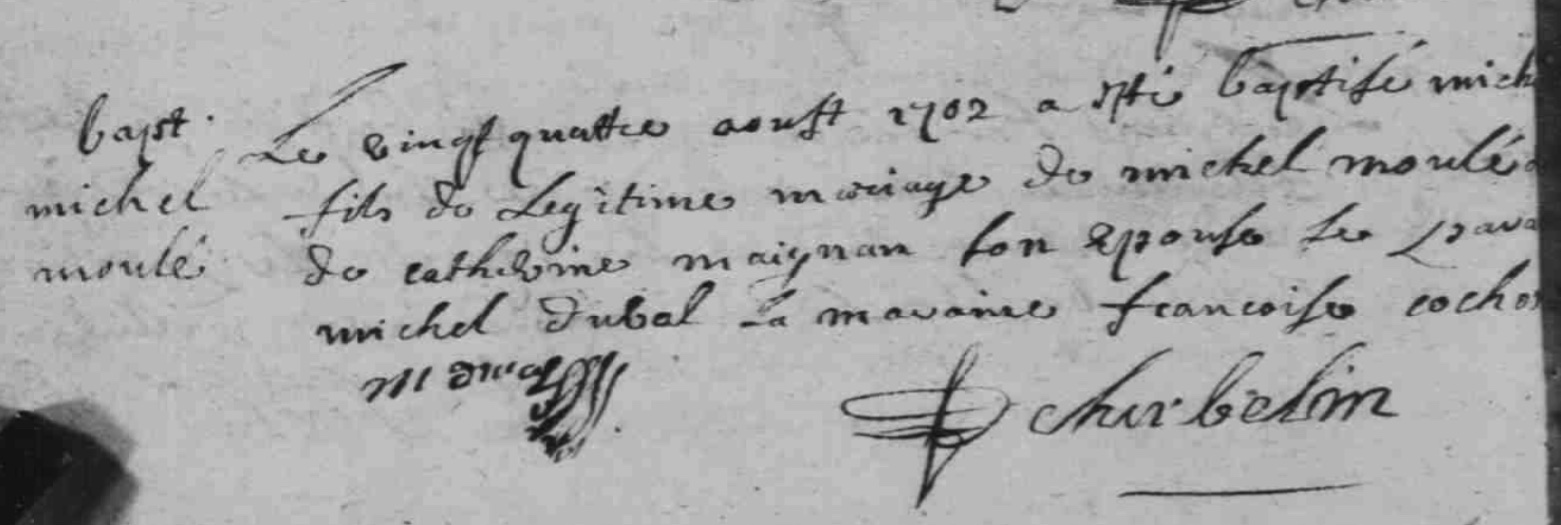 bapt.
michel
moulé
Le vingt quattre aoust 1702 a esté baptisé mich
fils de Legitime mariage de michel moulé
de catherine maignan son epouse Le para
michel dubal La maraine francoise cocho
churbelin